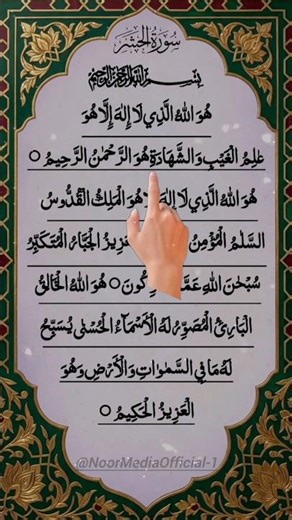 سُورَةُ الْحَشْر
بِسْمِ اللهِ الرَّحْمٰنِ الرَّحِيْمِ
هُوَ اللهُ الَّذِي لَا إِلٰهَ إِلَّا هُوَ
عٰلِمُ الْغَيْبِ وَالشَّهَادَةِ هُوَ الرَّحْمٰنُ الرَّحِيْمُ ○
هُوَ اللهُ الَّذِي لَا إِلٰهَ هُوَ الْمَلِكُ الْقُدُّوسُ
السَّلٰمُ الْمُؤْمِنُ الْجَبَّارُ الْمُتَكَبِّرُ
سُبْحٰنَ اللهِ ○ هُوَ اللهُ الْخَالِقُ
الْبَارِئُ الْمُصَوِّرُ لَهُ الْأَسْمَاءُ الْحُسْنٰى يُسَبِّحُ
لَهُ مَا فِي السَّمٰوَاتِ وَالْأَرْضِ وَهُوَ
الْعَزِيْزُ الْحَكِيْمُ ○
@NoorMediaOfficial-1